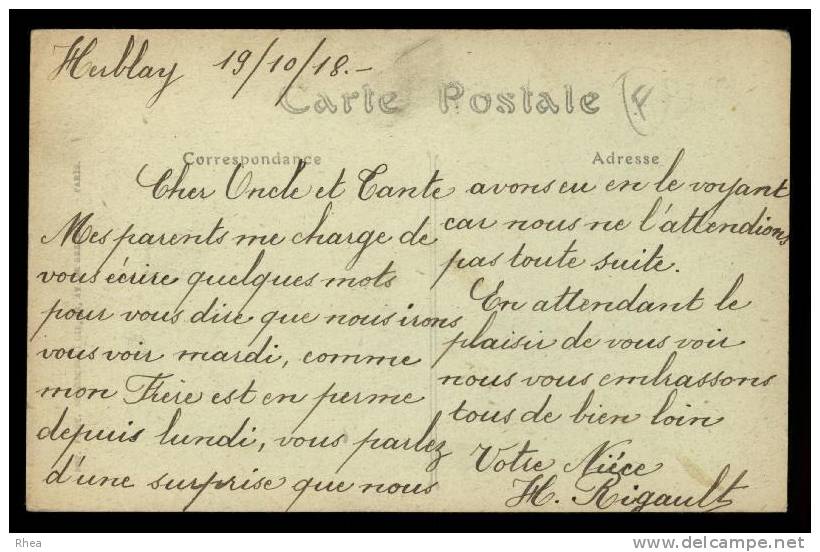 Herblay 19/10/18.-
Carte Postale
Correspondance
Adresse
Cher Oncle et Tante
Mes parents me charge de
vous écrire quelques mots
pour vous dire que nous irons
vous voir mardi, comme
mon Frère est en perme
depuis lundi, vous parlez
d'une surprise que nous
avons eu en le voyant
car nous ne l'attendions
pas toute suite.
En attendant le
plaisir de vous voir
nous vous embrassons
tous de bien loin
Votre Nièce
H. Rigault
PARIS.
Rhea
www.delcampe.net